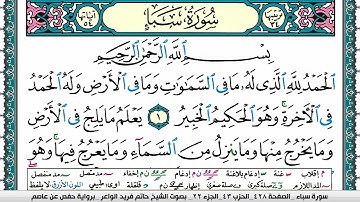 سُورَةُ سَبَإٍ
ترتيبها ٣٤
آياتها ٥٤
بِسْمِ ٱللَّهِ ٱلرَّحْمَٰنِ ٱلرَّحِيمِ
ٱلْحَمْدُ لِلَّهِ ٱلَّذِى لَهُۥ مَا فِى ٱلسَّمَٰوَٰتِ وَمَا فِى ٱلْأَرْضِ وَلَهُ ٱلْحَمْدُ
فِى ٱلْـَٔاخِرَةِ ۚ وَهُوَ ٱلْحَكِيمُ ٱلْخَبِيرُ ١ يَعْلَمُ مَا يَلِجُ فِى ٱلْأَرْضِ
وَمَا يَخْرُجُ مِنْهَا وَمَا يَنزِلُ مِنَ ٱلسَّمَآءِ وَمَا يَعْرُجُ فِيهَا ۚ وَهُوَ
سورة سباء . الصفحة ٤٢٨ . الحزب ٤٣ . الجزء ٢٢ . بصوت الشيخ حاتم فريد الواعر . برواية حفص عن عاصم